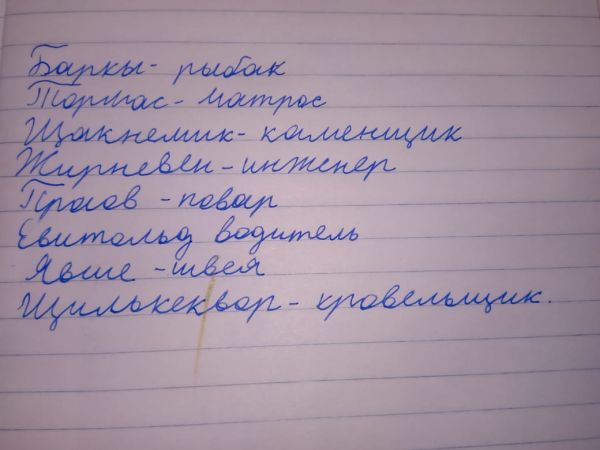 Баркы - рыбак
Тормас - матрос
Щакнемик - каменщик
Жирневен - инженер
Праов - повар
Евитольд водитель
Явше - швея
Щилькеквор - кровельщик.